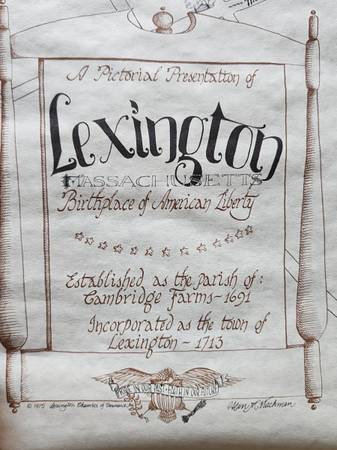 A Pictorial Presentation of
Lexington
MASSACHUSETTS
Birthplace of American Liberty
Established as the parish of:
Cambridge Farms-1691
Incorporated as the town of
Lexington - 1713
© 1975 Lexington Chamber of Commerce